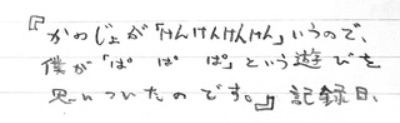 『かのじょが「けんけんけんけん」いうので、
僕が「ぱ ぱ ぱ」という遊びを
思いついたのです。』記録日、